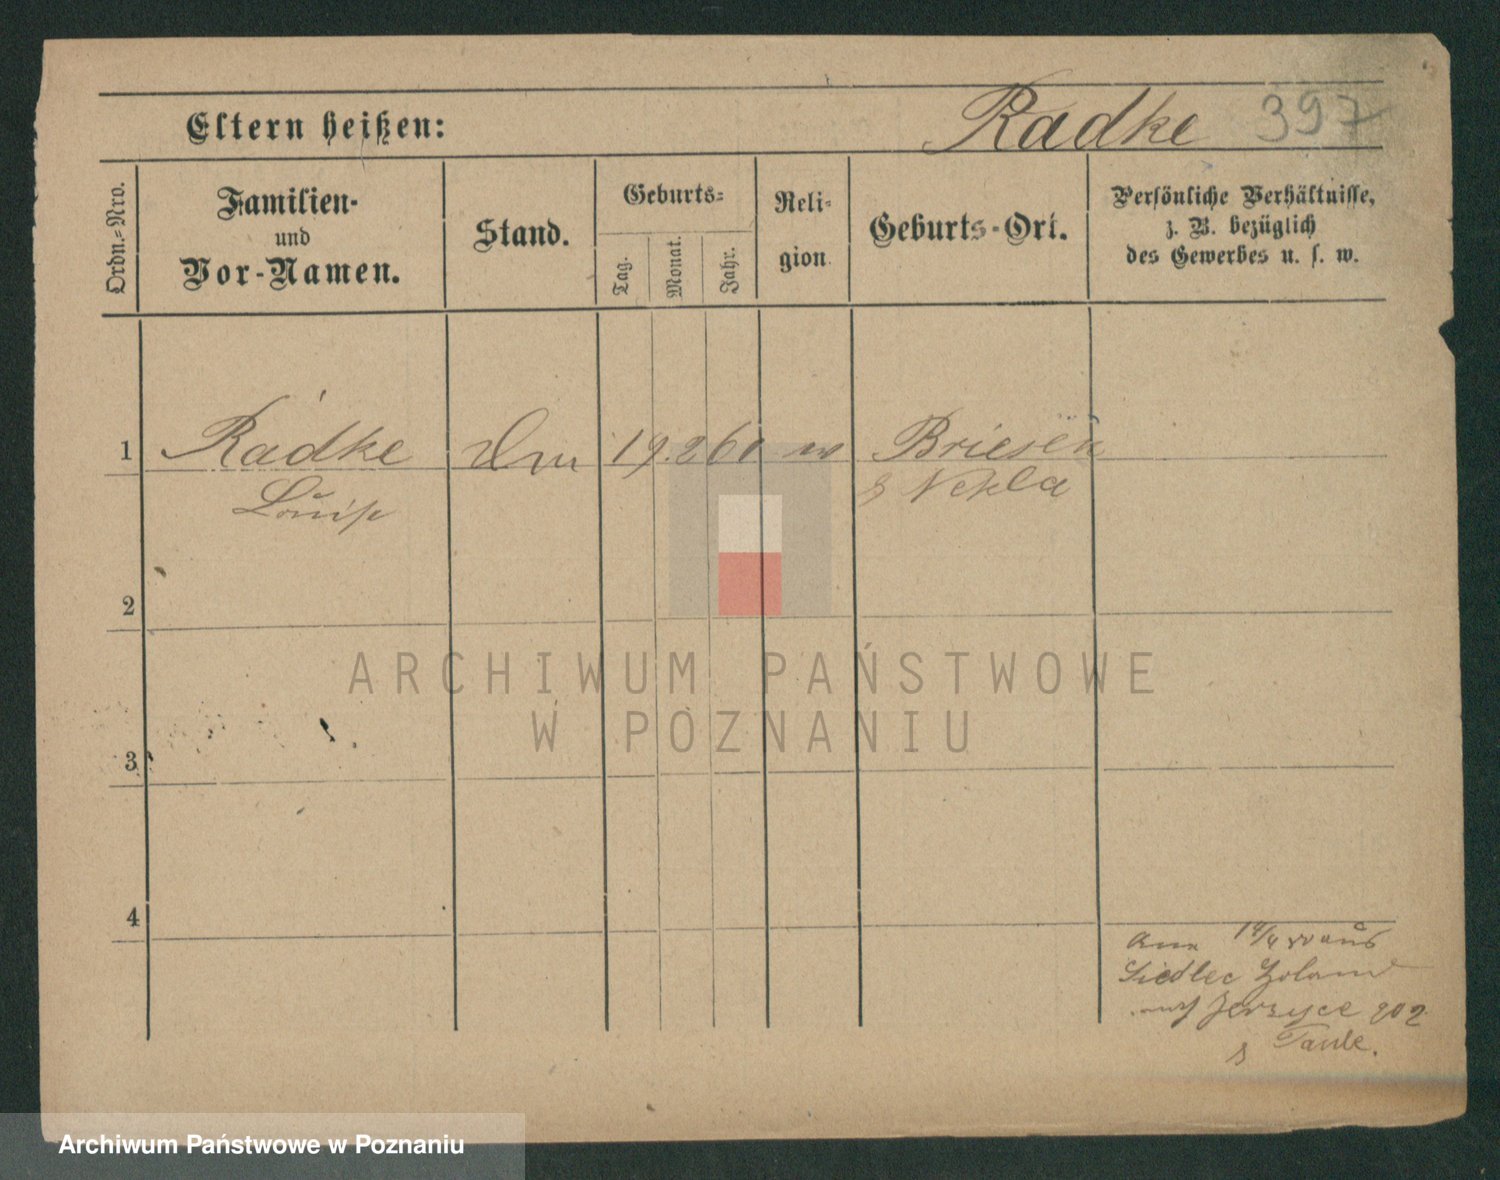 Eltern heißen: Radke 397
Ordn.-Nro.
Familien-
und
Vor-Namen.
Stand.
Geburts-
Tag.
Monat.
Jahr.
Reli-
gion
Geburts-Ort.
Persönliche Verhältnisse,
z. B. bezüglich
des Gewerbes u. s. w.
1 Radke 19. 2 60 Briesen
Louise Nekla
2
3
4
14/4 aus
Siedlec
Jerzyce 202
ARCHIWUM PAŃSTWOWE
W POZNANIU
Archiwum Państwowe w Poznaniu